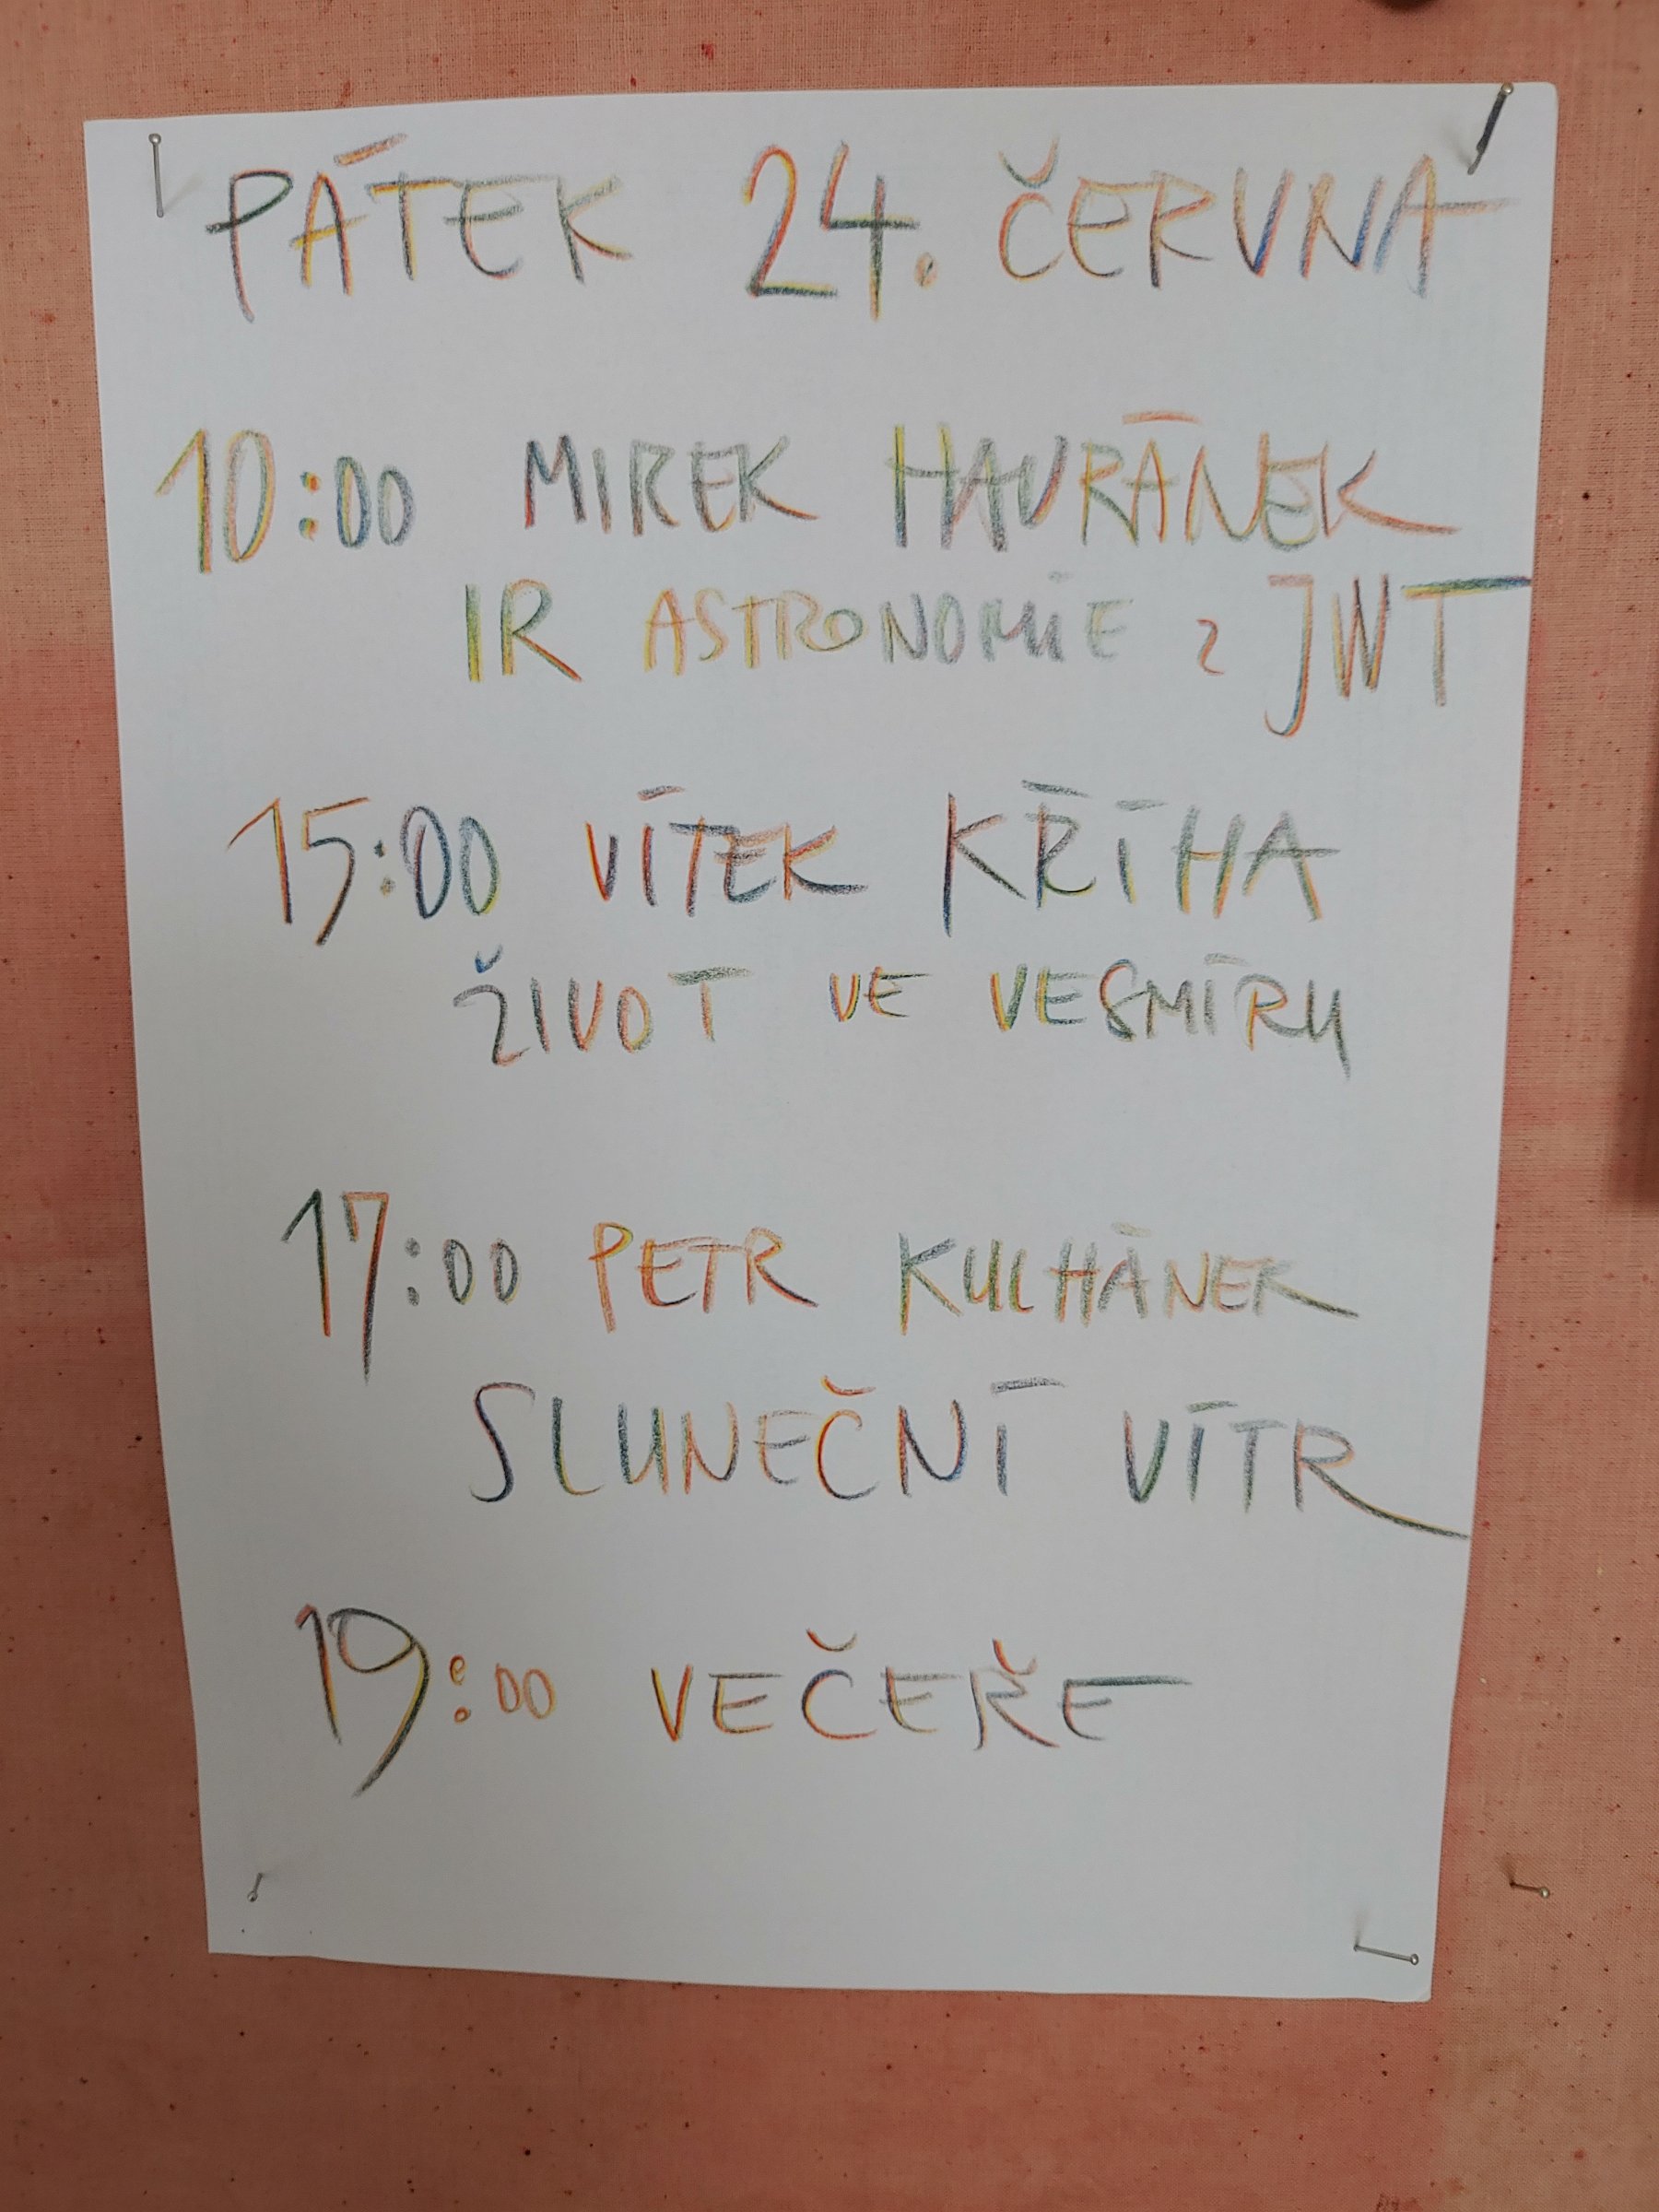 PÁTEK 24. ČERVNA
10:00 MIREK HAVRÁNEK
IR ASTRONOMIE z JWT
15:00 VÍTEK KŘÍHA
ŽIVOT VE VESMÍRU
17:00 PETR KULHÁNEK
SLUNEČNÍ VÍTR
19:00 VEČEŘE